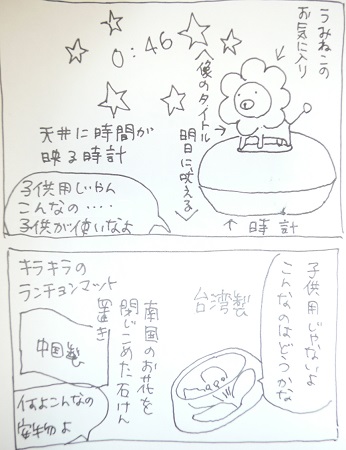 うみねこの
お気に入り
〈像のタイトル
明日に吠える〉
0:46
天井に時間が
映る時計
時計
子供用じゃん
こんなの‥‥
子供が使いなよ
子供用じゃないよ
こんなのはどうかな
台湾製
南国のお花を
閉じこめた石けん
置き
キラキラの
ランチョンマット
中国製
何よこんなの
安物よ